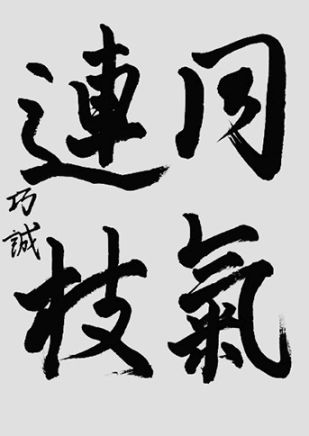 同氣
連枝
巧誠